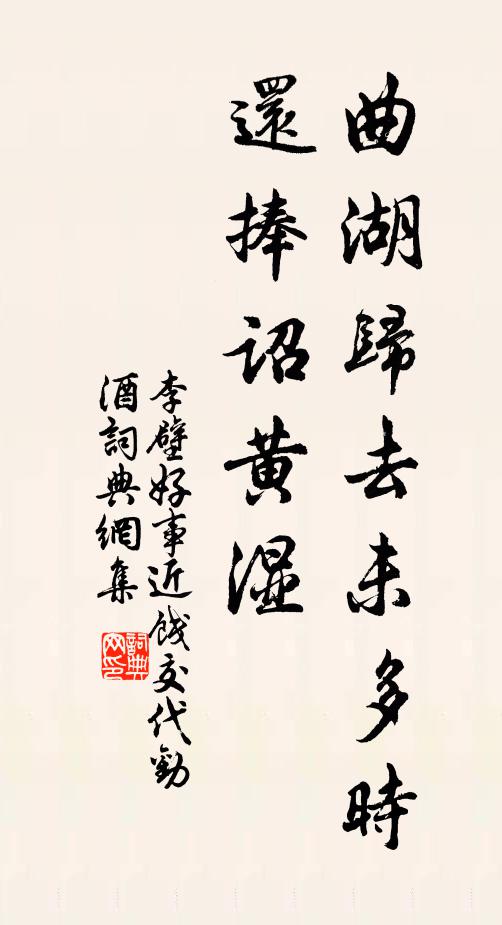 曲湖歸去未多時
還捧詔黃濕
李壁好事近餞交代勸
酒詞典網集
詞典网印